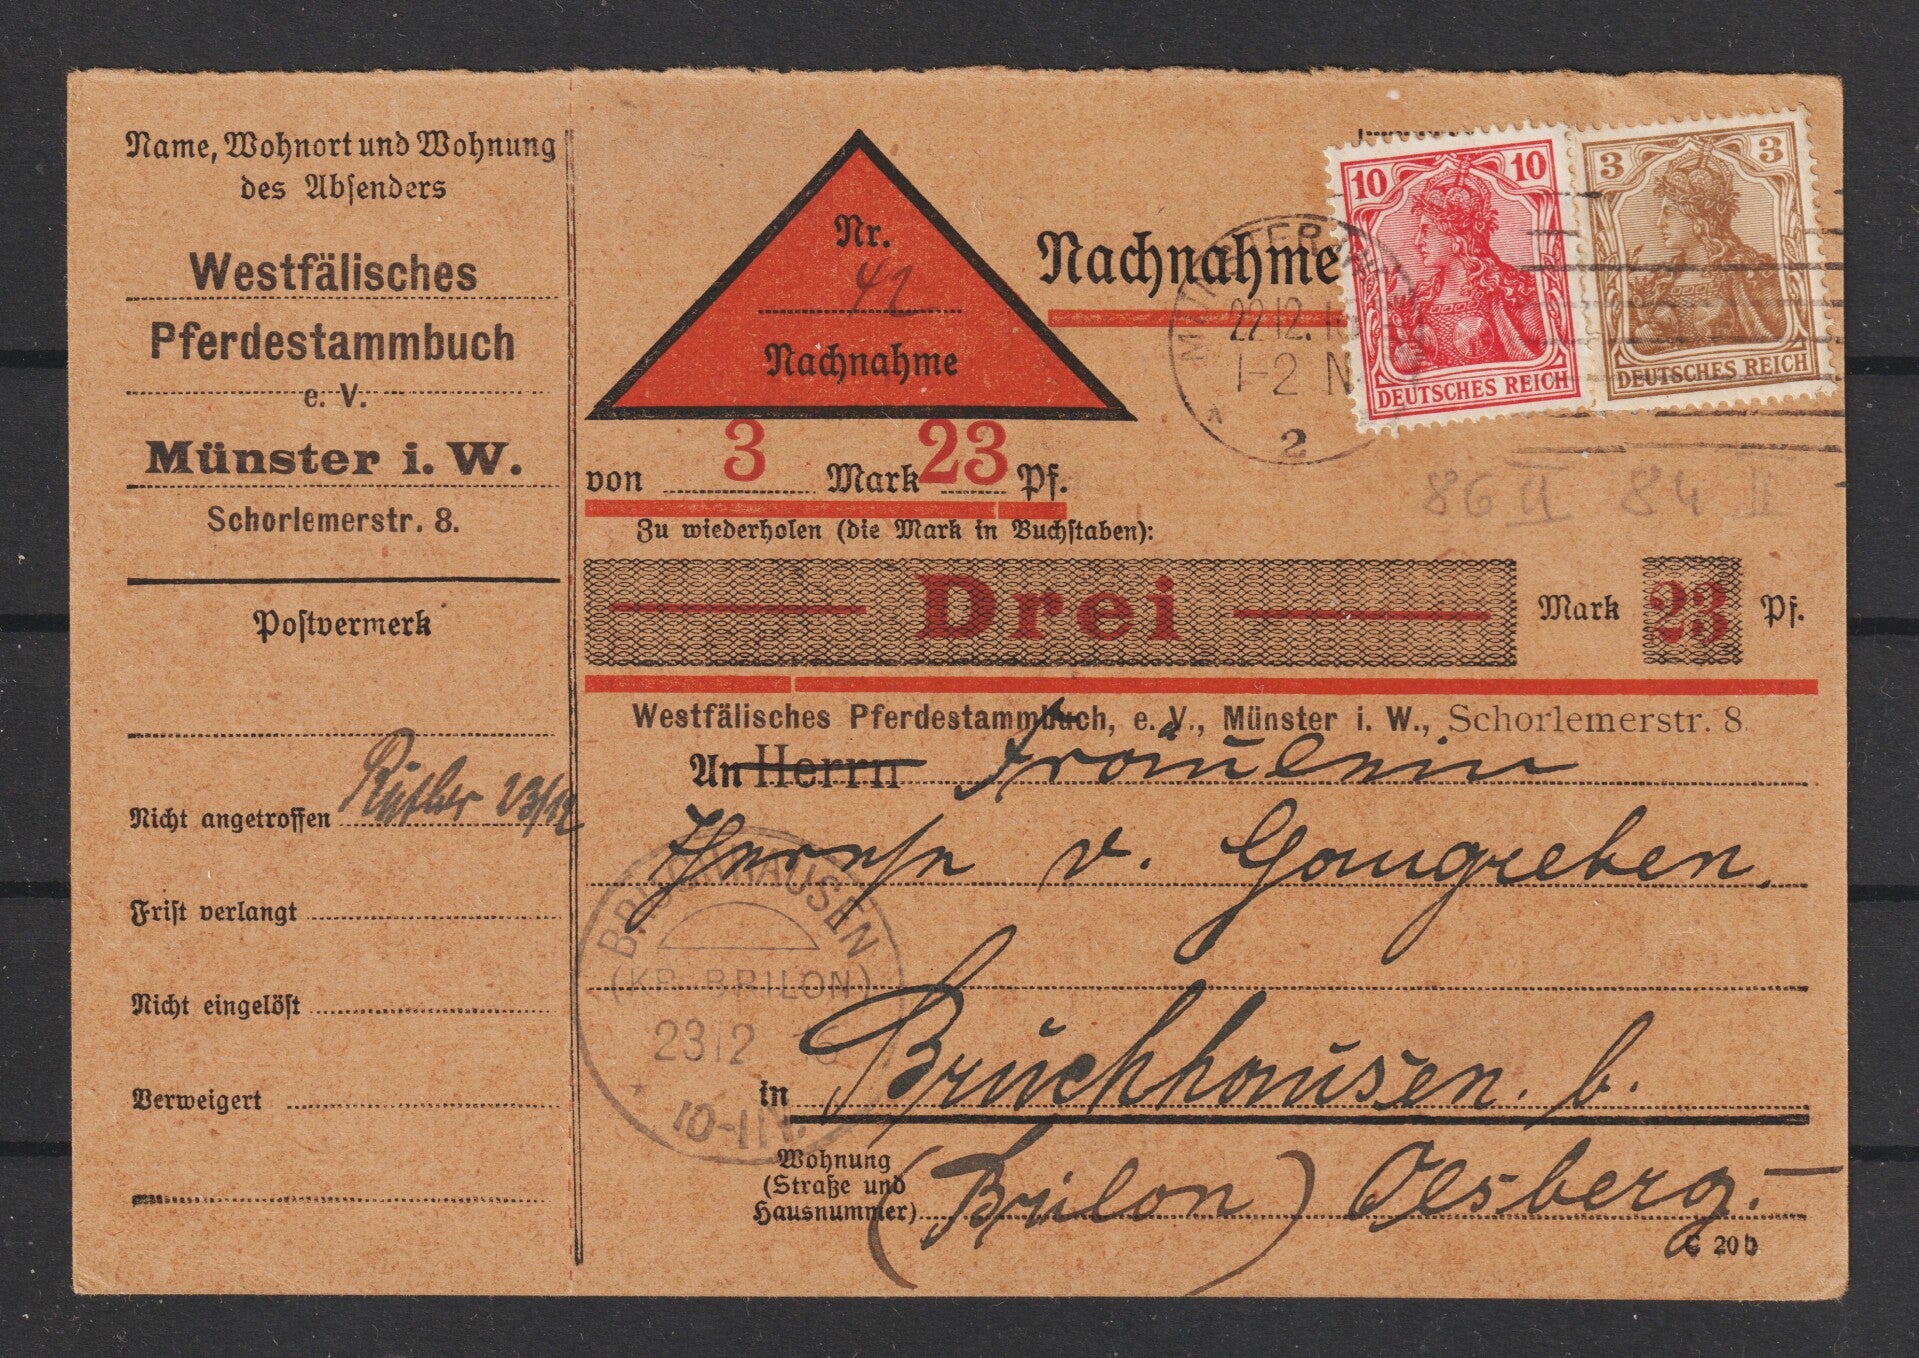 Name, Wohnort und Wohnung
des Absenders
Westfälisches
Pferdestammbuch
e. V.
Münster i. W.
Schorlemerstr. 8.
Postvermerk
Nicht angetroffen 23/12
Frist verlangt
Nicht eingelöst
Verweigert
Nr.
42
Nachnahme
Nachnahme
10 10
DEUTSCHES REICH
3 3
DEUTSCHES REICH
22 12.
1-2 N.
2
86 II 84 II
von 3 Mark 23 Pf.
Zu wiederholen (die Mark in Buchstaben):
Drei Mark 23 Pf.
Westfälisches Pferdestammbuch, e. V., Münster i. W., Schorlemerstr. 8.
An Herrn Fräulein
v. Gaugreben.
(KR. BRILON)
23 12
10-11 V.
in Bruchhausen. b.
Wohnung
(Straße und
Hausnummer) (Brilon) Olsberg.
C 20 b